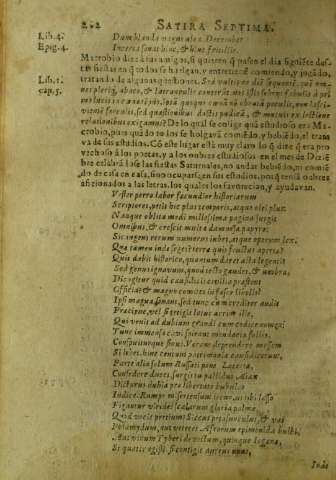 2 2 SATIRA SEPTIMA.
Lib. 4. Dum blanda vagus alea December
Epig. 4. Incertis sonat hinc, & hinc fritillis.
Macrobio dize à sus amigos, si quieren q̃ passen el dia siguiẽte des-
tas fiestas en q̃ todos se holgan, y entretienẽ comiendo, y jugãdo,
Lib. 1. tratando de algunas questiones. Sed vultisne diei sequentis, quã
cap. 5. plerique abaco, & latrunculis conterunt,
De lo qual se colige quã estudioso era Ma-
crobio, pues quãdo todos se holgavã comiẽdo, y bebiẽdo, el trata
va de sus estudios. Cõ este lugar està muy claro lo q̃ dize q̃ era pro
vechoso à los poetas, y à los onbres estudiosos en el mes de Dizie
bre celebrãdose las fiestas Saturnales, no andar bebiẽdo, ni comiẽ
do de casa en casa, sino ocuparse en sus estudios, porq̃ tenia onbres
aficionados a las letras, los quales los favorecian, y ayudavan.
Vester porro labor fecundior historiarum
Scriptores, petit hic plus temporis, atque olei plus.
Namque oblita modi millesima pagina surgit
Omnibus, & crescit multa damnosa papyro:
Sic ingens rerum numerus iubet, atque operum lex.
Quæ tamen inde seges? terræ quis fructus apertæ?
Quis dabit historico, quantum daret acta legenti
Sed genus ignavum, quod lecto gaudet, & umbra.
Dic igitur quid causidicis civilia præstent
Officia, & magno comites in fasce libelli?
Ipsi magna sonant, sed tunc cum creditor audit
Præcipue, vel si tetigit latus acrior ille,
Qui venit ad dubium grandi cum codice nomen:
Tunc immensa cavi spirant mendacia folles,
Conspuiturque sinus. Veram deprendere messem
Si libet, hinc centum patrimonia causidicorum,
Parte alia solum Russati pone Lacernæ.
Consedere duces, surgis tu pallidus Aiax
Dicturus dubia pro libertate bubulco
Iudice. Rumpe miser tensum iecur, ut tibi lasso
Figantur virides scalarum gloria palmæ.
Quid vocis pretium? Siccus petasunculus, & vas
Pelamydum, aut veteres Afrorum epimenida bulbi,
Aut vinum Tyberi devectum, quinque lagenæ,
Si quater egisti: si contigit aureus unus,
Inde